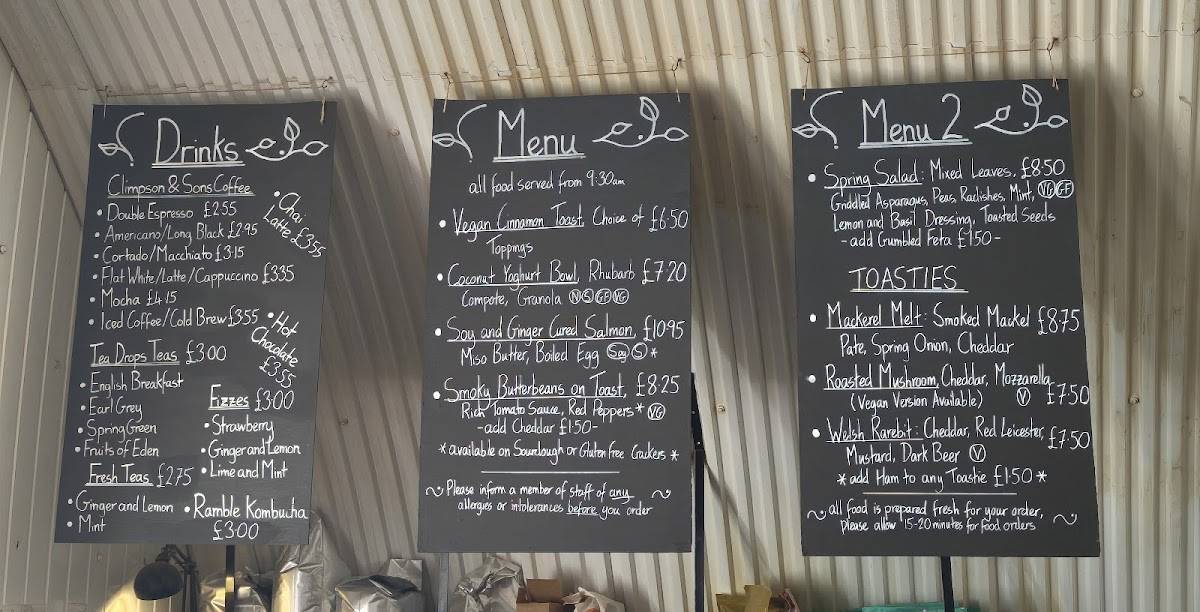 Drinks
Climpson & Sons Coffee
• Double Espresso £2.55
• Americano/Long Black £2.95
• Cortado/Macchiato £3.15
• Flat White/Latte/Cappuccino £3.35
• Mocha £4.15
• Iced Coffee/Cold Brew £3.55
• Chai
Latte £3.55
• Hot
Chocolate
£3.55
Tea Drops Teas £3.00
• English Breakfast
• Earl Grey
• Spring Green
• Fruits of Eden
Fresh Teas £2.75
• Ginger and Lemon
• Mint
Fizzes £3.00
• Strawberry
• Ginger and Lemon
• Lime and Mint
• Ramble Kombucha
£3.00
Menu
all food served from 9:30am
• Vegan Cinnamon Toast, Choice of £6.50
Toppings
• Coconut Yoghurt Bowl, Rhubarb £7.20
Compote, Granola N S GF VG
• Soy and Ginger Cured Salmon, £10.95
Miso Butter, Boiled Egg Soy S *
• Smoky Butterbeans on Toast, £8.25
Rich Tomato Sauce, Red Peppers * VG
- add Cheddar £1.50 -
* available on Sourdough or Gluten free Crackers *
Please inform a member of staff of any
allergies or intolerances before you order
Menu 2
• Spring Salad: Mixed Leaves, £8.50
Griddled Asparagus, Peas, Radishes, Mint, VG GF
Lemon and Basil Dressing, Toasted Seeds
- add Crumbled Feta £1.50 -
TOASTIES
• Mackerel Melt: Smoked Mackel £8.75
Pate, Spring Onion, Cheddar
• Roasted Mushroom, Cheddar, Mozzarella,
(Vegan Version Available) V £7.50
• Welsh Rarebit: Cheddar, Red Leicester, £7.50
Mustard, Dark Beer V
* add Ham to any Toastie £1.50 *
all food is prepared fresh for your order,
please allow 15-20 minutes for food orders